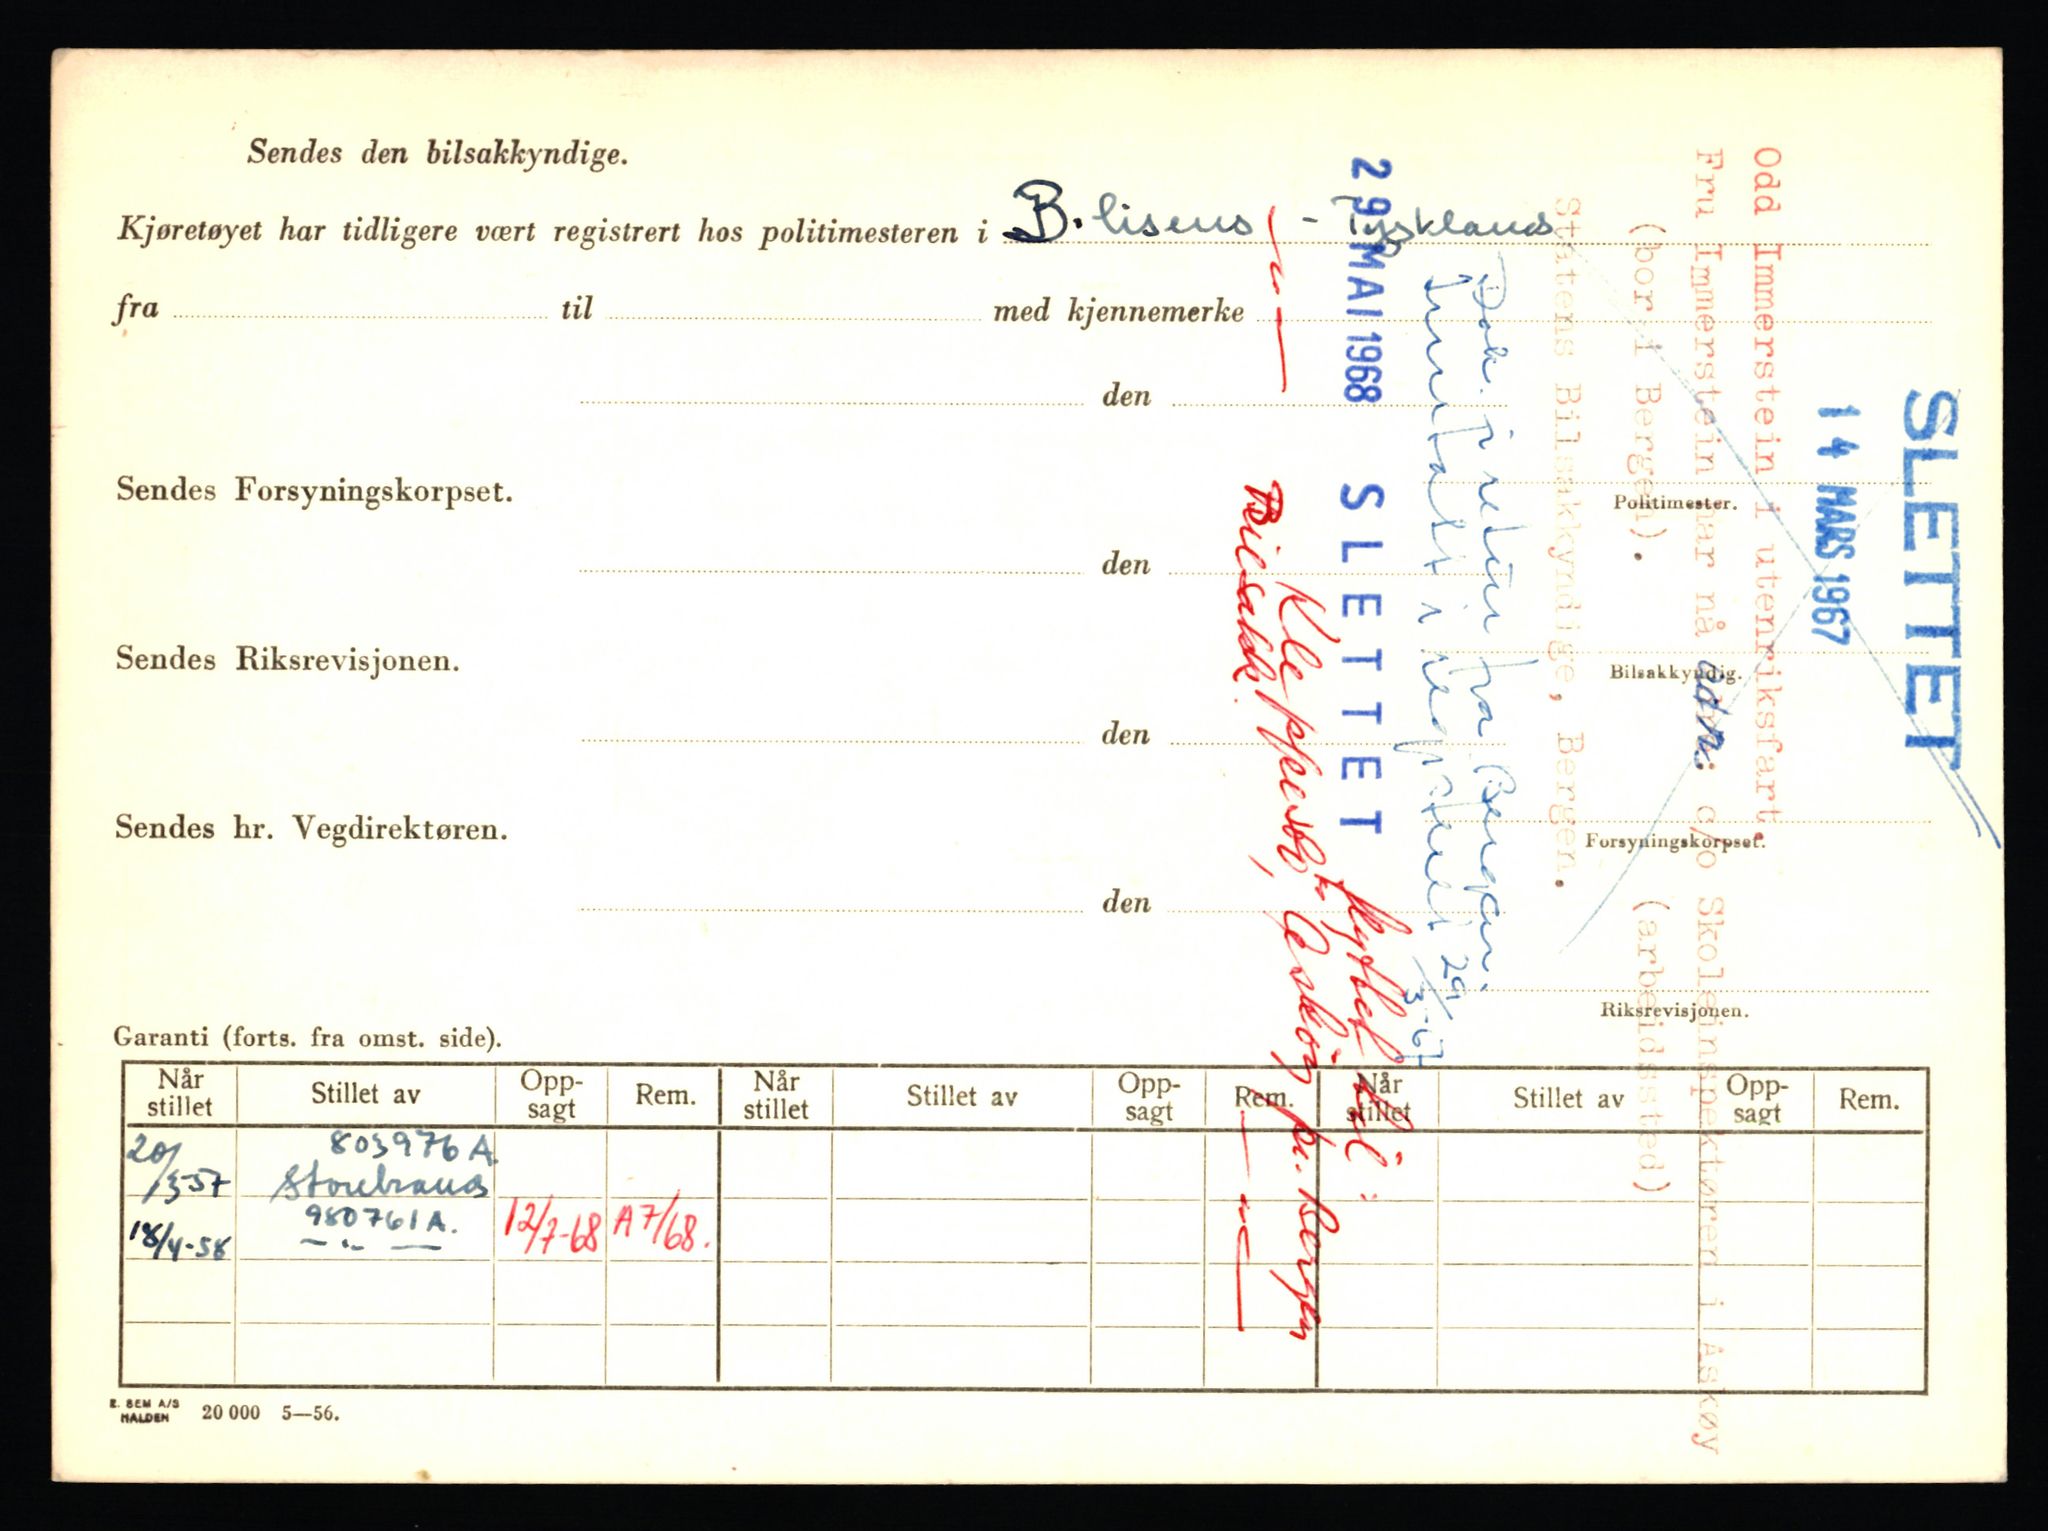 Sendes den bilsakkyndige.
Kjøretøyet har tidligere vært registrert hos politimesteren i B. lisens - Tyskland
fra til med kjennemerke
den
Politimester.
Sendes Forsyningskorpset.
den
Bilsakkyndig.
Sendes Riksrevisjonen.
den
Forsyningskorpset.
Sendes hr. Vegdirektøren.
den
Riksrevisjonen.
Garanti (forts. fra omst. side).
Når stillet Stillet av Opp-sagt Rem. Når stillet Stillet av Opp-sagt Rem. Når stillet Stillet av Opp-sagt Rem.
20/3-57 803976 A. Storebrand
18/4-58 980761 A. — " — 12/7-68 A7/68.
E. SEM A/S
HALDEN 20 000 5—56.
SLETTET
14 MARS 1967
Odd Immerstein i utenriksfart.
Fru Immerstein har nå adr.: c/o Skoleinspektøren i Askøy
(bor i Bergen). (arbeidssted)
Statens Bilsakkyndige, Bergen.
Dok. i retur fra Bergen.
Innfalt i reg. 29/3-67
29 MAI 1968 SLETTET
flyttet til:
Kleppestø, Askøy pr. Bergen
— " — Bilsakk. — " —